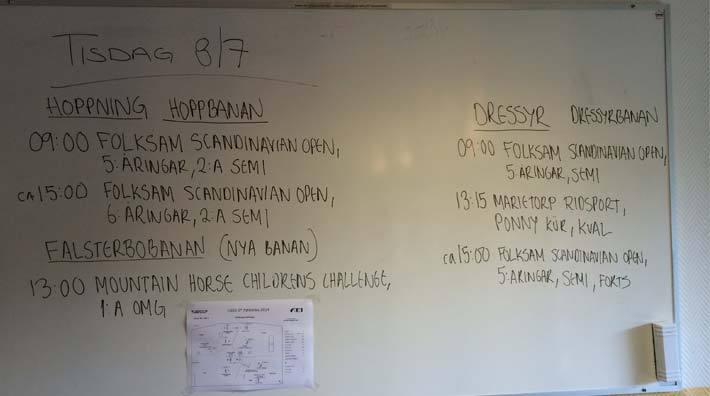 TISDAG 8/7
HOPPNING HOPPBANAN
09:00 FOLKSAM SCANDINAVIAN OPEN,
5:ÅRINGAR, 2:A SEMI
ca 15:00 FOLKSAM SCANDINAVIAN OPEN,
6:ÅRINGAR, 2:A SEMI
FALSTERBOBANAN (NYA BANAN)
13:00 MOUNTAIN HORSE CHILDRENS CHALLENGE,
1:A OMG
DRESSYR DRESSYRBANAN
09:00 FOLKSAM SCANDINAVIAN OPEN,
5:ÅRINGAR, SEMI
13:15 MARIETORP RIDSPORT,
PONNY KÜR, KVAL
ca 15:00 FOLKSAM SCANDINAVIAN OPEN,
5:ÅRINGAR, SEMI, FORTS